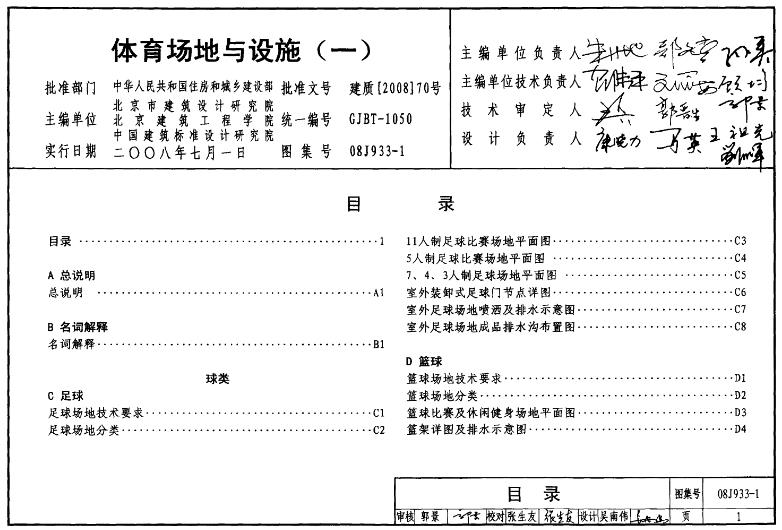 体育场地与设施（一）
批准部门 中华人民共和国住房和城乡建设部 批准文号 建质[2008]70号
主编单位 北京市建筑设计研究院
北京建筑工程学院 统一编号 GJBT-1050
中国建筑标准设计研究院
实行日期 二〇〇八年七月一日 图集号 08J933-1
主编单位负责人
主编单位技术负责人
技术审定人
设计负责人
目 录
目录 1
A 总说明
总说明 A1
B 名词解释
名词解释 B1
球类
C 足球
足球场地技术要求 C1
足球场地分类 C2
11人制足球比赛场地平面图 C3
5人制足球比赛场地平面图 C4
7、4、3人制足球场地平面图 C5
室外装卸式足球门节点详图 C6
室外足球场地喷洒及排水示意图 C7
室外足球场地成品排水沟布置图 C8
D 篮球
篮球场地技术要求 D1
篮球场地分类 D2
篮球比赛及休闲健身场地平面图 D3
篮架详图及排水示意图 D4
目 录 图集号 08J933-1
审核 郭景 校对 张生友 设计 吴南伟 页 1